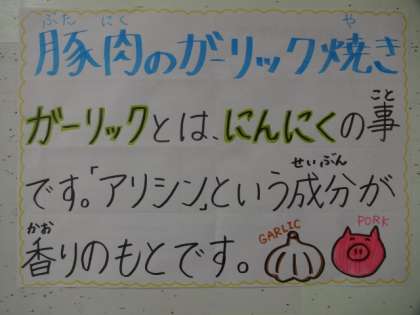 ぶた にく や
豚肉のガーリック焼き
こと
ガーリックとは、にんにくの事
せいぶん
です。「アリシン」という成分が
かお
香りのもとです。
GARLIC
PORK